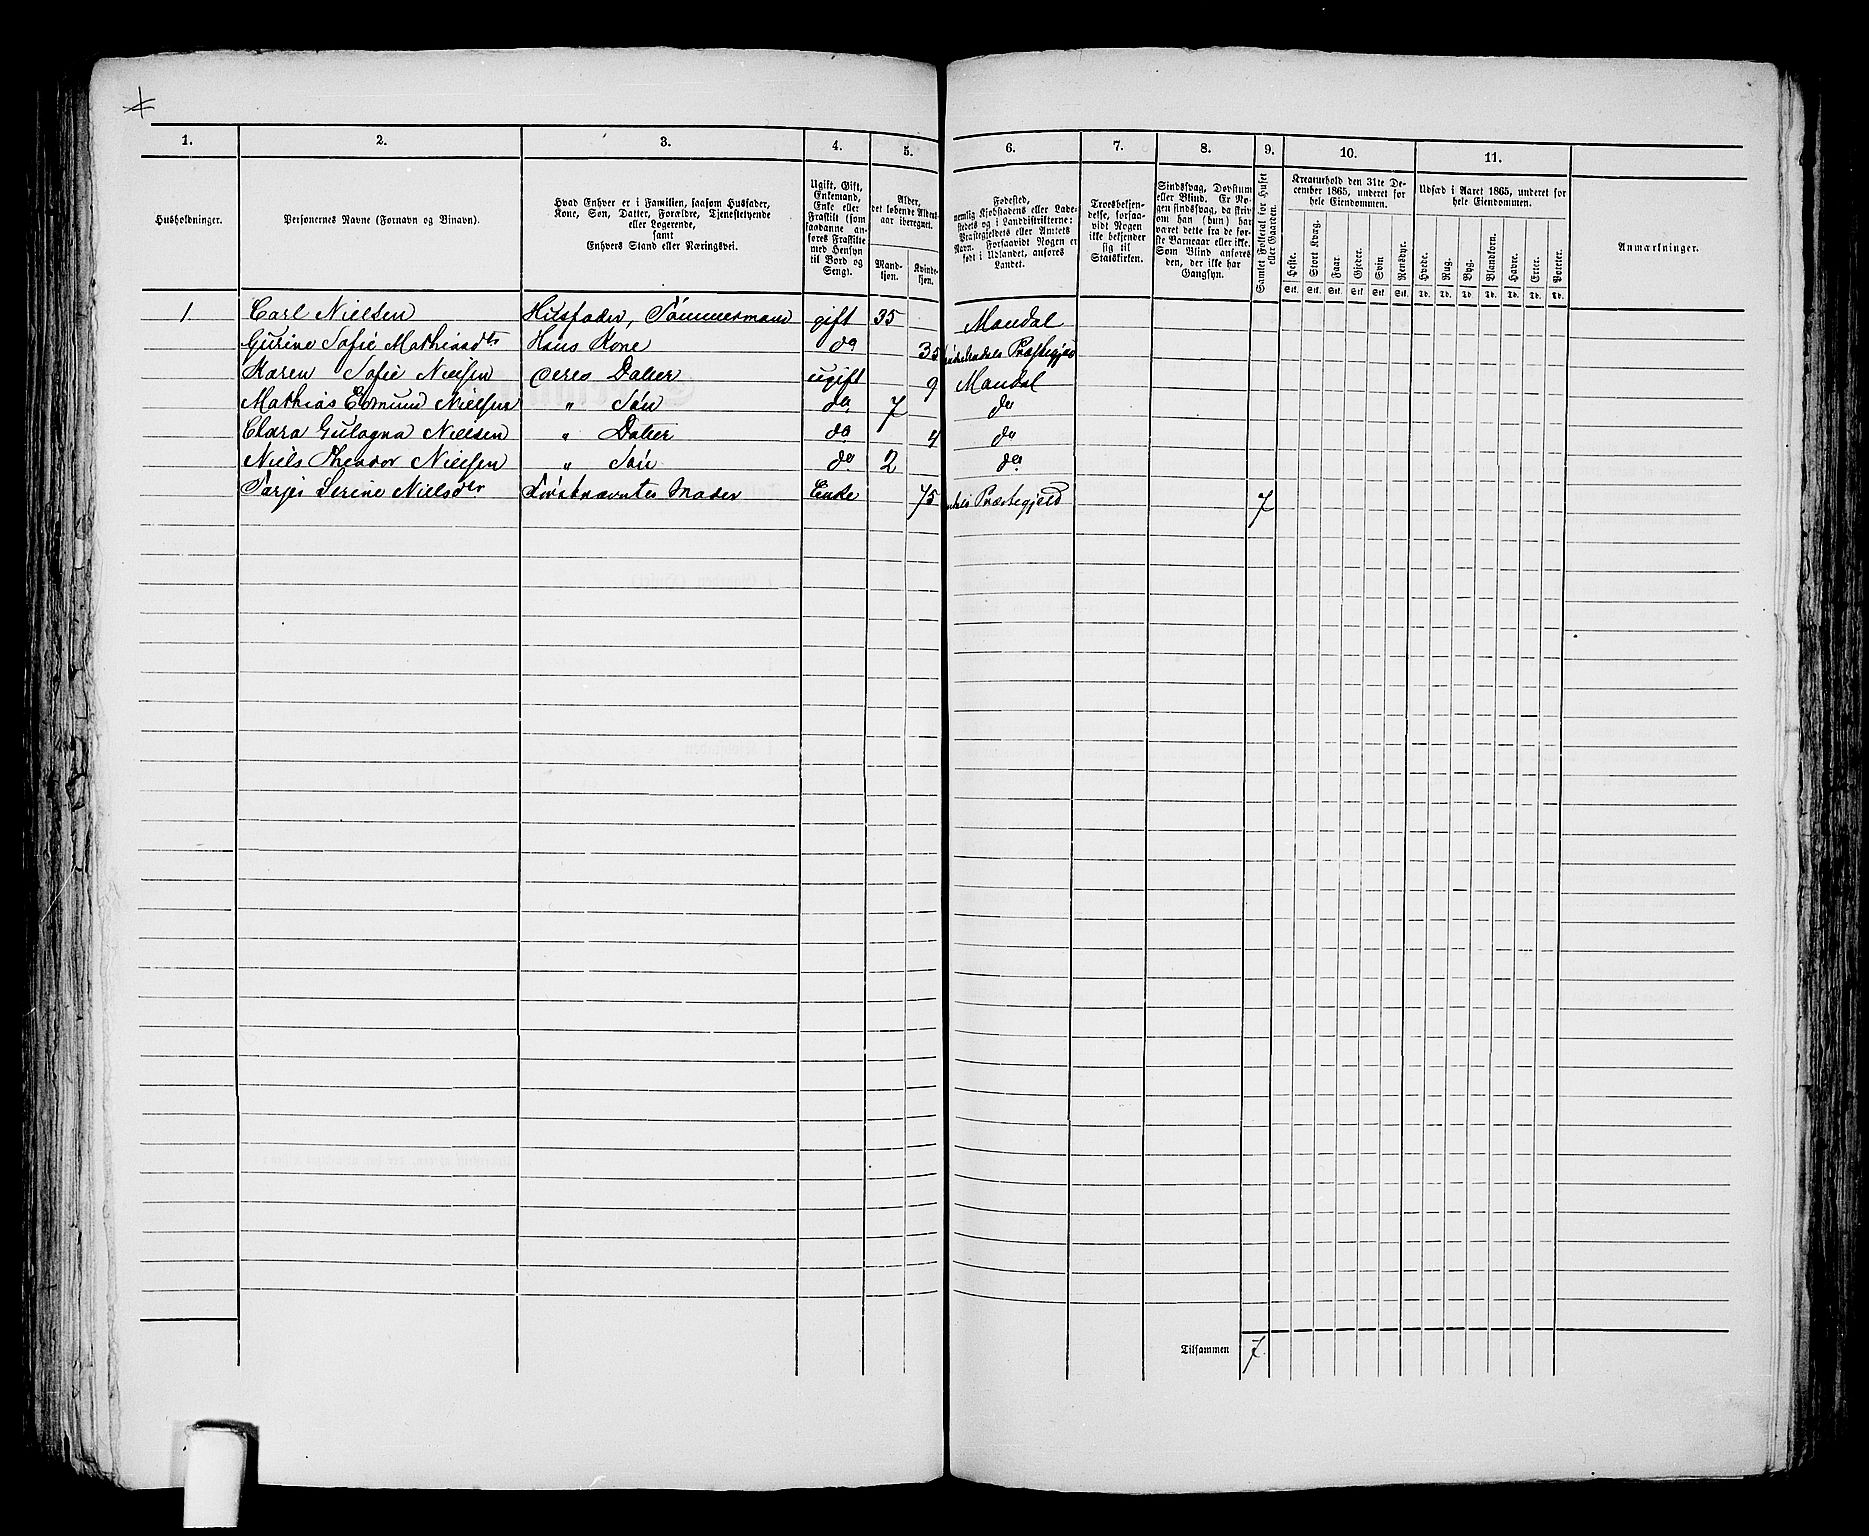 1. 2. 3. 4. 5. 6. 7. 8. 9. 10. 11.
Husholdninger.
Personernes Navne (Fornavn og Binavn).
Hvad Enhver er i Familien, saasom Husfader,
Kone, Søn, Datter, Forældre, Tjenestetyende
eller Logerende,
samt
Enhvers Stand eller Næringsvei.
Ugift, Gift,
Enkemand,
Enke eller
Fraskilt (som
saadanne an-
føres Fraskilte
med Hensyn
til Bord og
Seng).
Alder,
det løbende Alders-
aar iberegnet.
Mand-
kjøn.
Kvinde-
kjøn.
Fødested,
nemlig Kjøbstadens eller Lade-
stedets og i Landdistrikterne:
Præstegjeldets eller Amtets
Navn. Forsaavidt Nogen er
født i Udlandet, anføres
Landet.
Troesbekjen-
delse, forsaa-
vidt Nogen
ikke bekjender
sig til
Statskirken.
Sindssvag, Døvstum
eller Blind. Er No-
gen sindssvag, da skriv
om han (hun) har
været dette fra de før-
ste Barneaar eller ikke.
Som Blind anføres
den, der ikke har
Gangsyn.
Samlet Folketal for Huset
eller Gaarden.
Kreaturhold den 31te De-
cember 1865, underet for
hele Eiendommen.
Heste. Stort Kvæg. Faar. Gjeder. Svin Rensdyr.
Stk. Stk. Stk. Stk. Stk. Stk.
Udsæd i Aaret 1865, underet for
hele Eiendommen.
Hvede. Rug. Byg. Blandkorn. Havre. Erter. Poteter.
Td. Td. Td. Td. Td. Td. Td.
Anmærkninger.
1 Carl Nielsen Husfader, Tömmermand gift 35 Mandal
Gurine Sofie Mathiasdtr Hans Kone do 35 Præstegjeld
Karen Sofie Nielsen Deres Datter ugift 9 Mandal
Mathias Edmund Nielsen " Sön do 7 do
Clara Gulagna Nielsen " Datter do 4 do
Niels Theodor Nielsen " Sön do 2 do
Tarjer Serine Nielsdtr Förstnævntes Moder Enke 75 Præstegjeld 7
Tilsammen 7